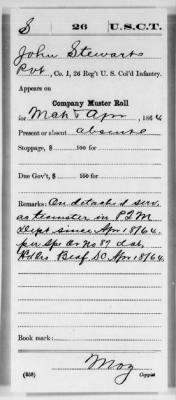 S | 26 | U.S.C.T.
John Stewart
Pvt, Co. I, 26 Reg't U. S. Col'd Infantry.
Appears on
Company Muster Roll
for Mch & Apr, 1864
Present or absent absent
Stoppage, $ 100 for
Due Gov't, $ 100 for
Remarks: On detached serv.
as teamster in
Dept since Apr 1864
per Sp Or No 87 dat
Hdqrs Beauf SC Apr 1864.
Book mark:
(858)
Moz
Copyist.